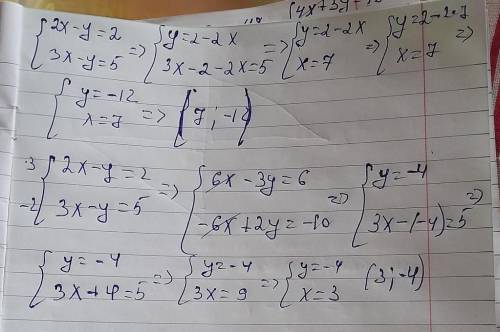 {2x-y=2 3x-y=5 => {y=2-2x 3x-2-2x=5 => {y=2-2x x=7 => {y=2-2·7 x=7 =>
{y=-12 x=7 => (7;-12)
·3 -2 {2x-y=2 3x-y=5 => {6x-3y=6 -6x+2y=-10 => {y=-4 3x-(-4)=5 =>
{y=-4 3x+4=5 => {y=-4 3x=9 => {y=-4 x=3 (3;-4)